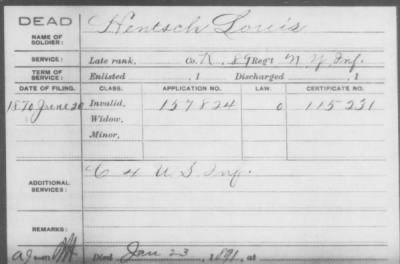 DEAD
NAME OF SOLDIER:
Hentsch Louis
SERVICE:
Late rank, Co. K, 89 Reg't N. Y. Inf.
TERM OF SERVICE:
Enlisted , 1 Discharged , 1
DATE OF FILING. CLASS. APPLICATION NO. LAW. CERTIFICATE NO.
1870 June 20 Invalid. 157824 0 115231
Widow.
Minor.
ADDITIONAL SERVICES:
C 4 U S Inf.
REMARKS:
Died Jan 23, 1891, at